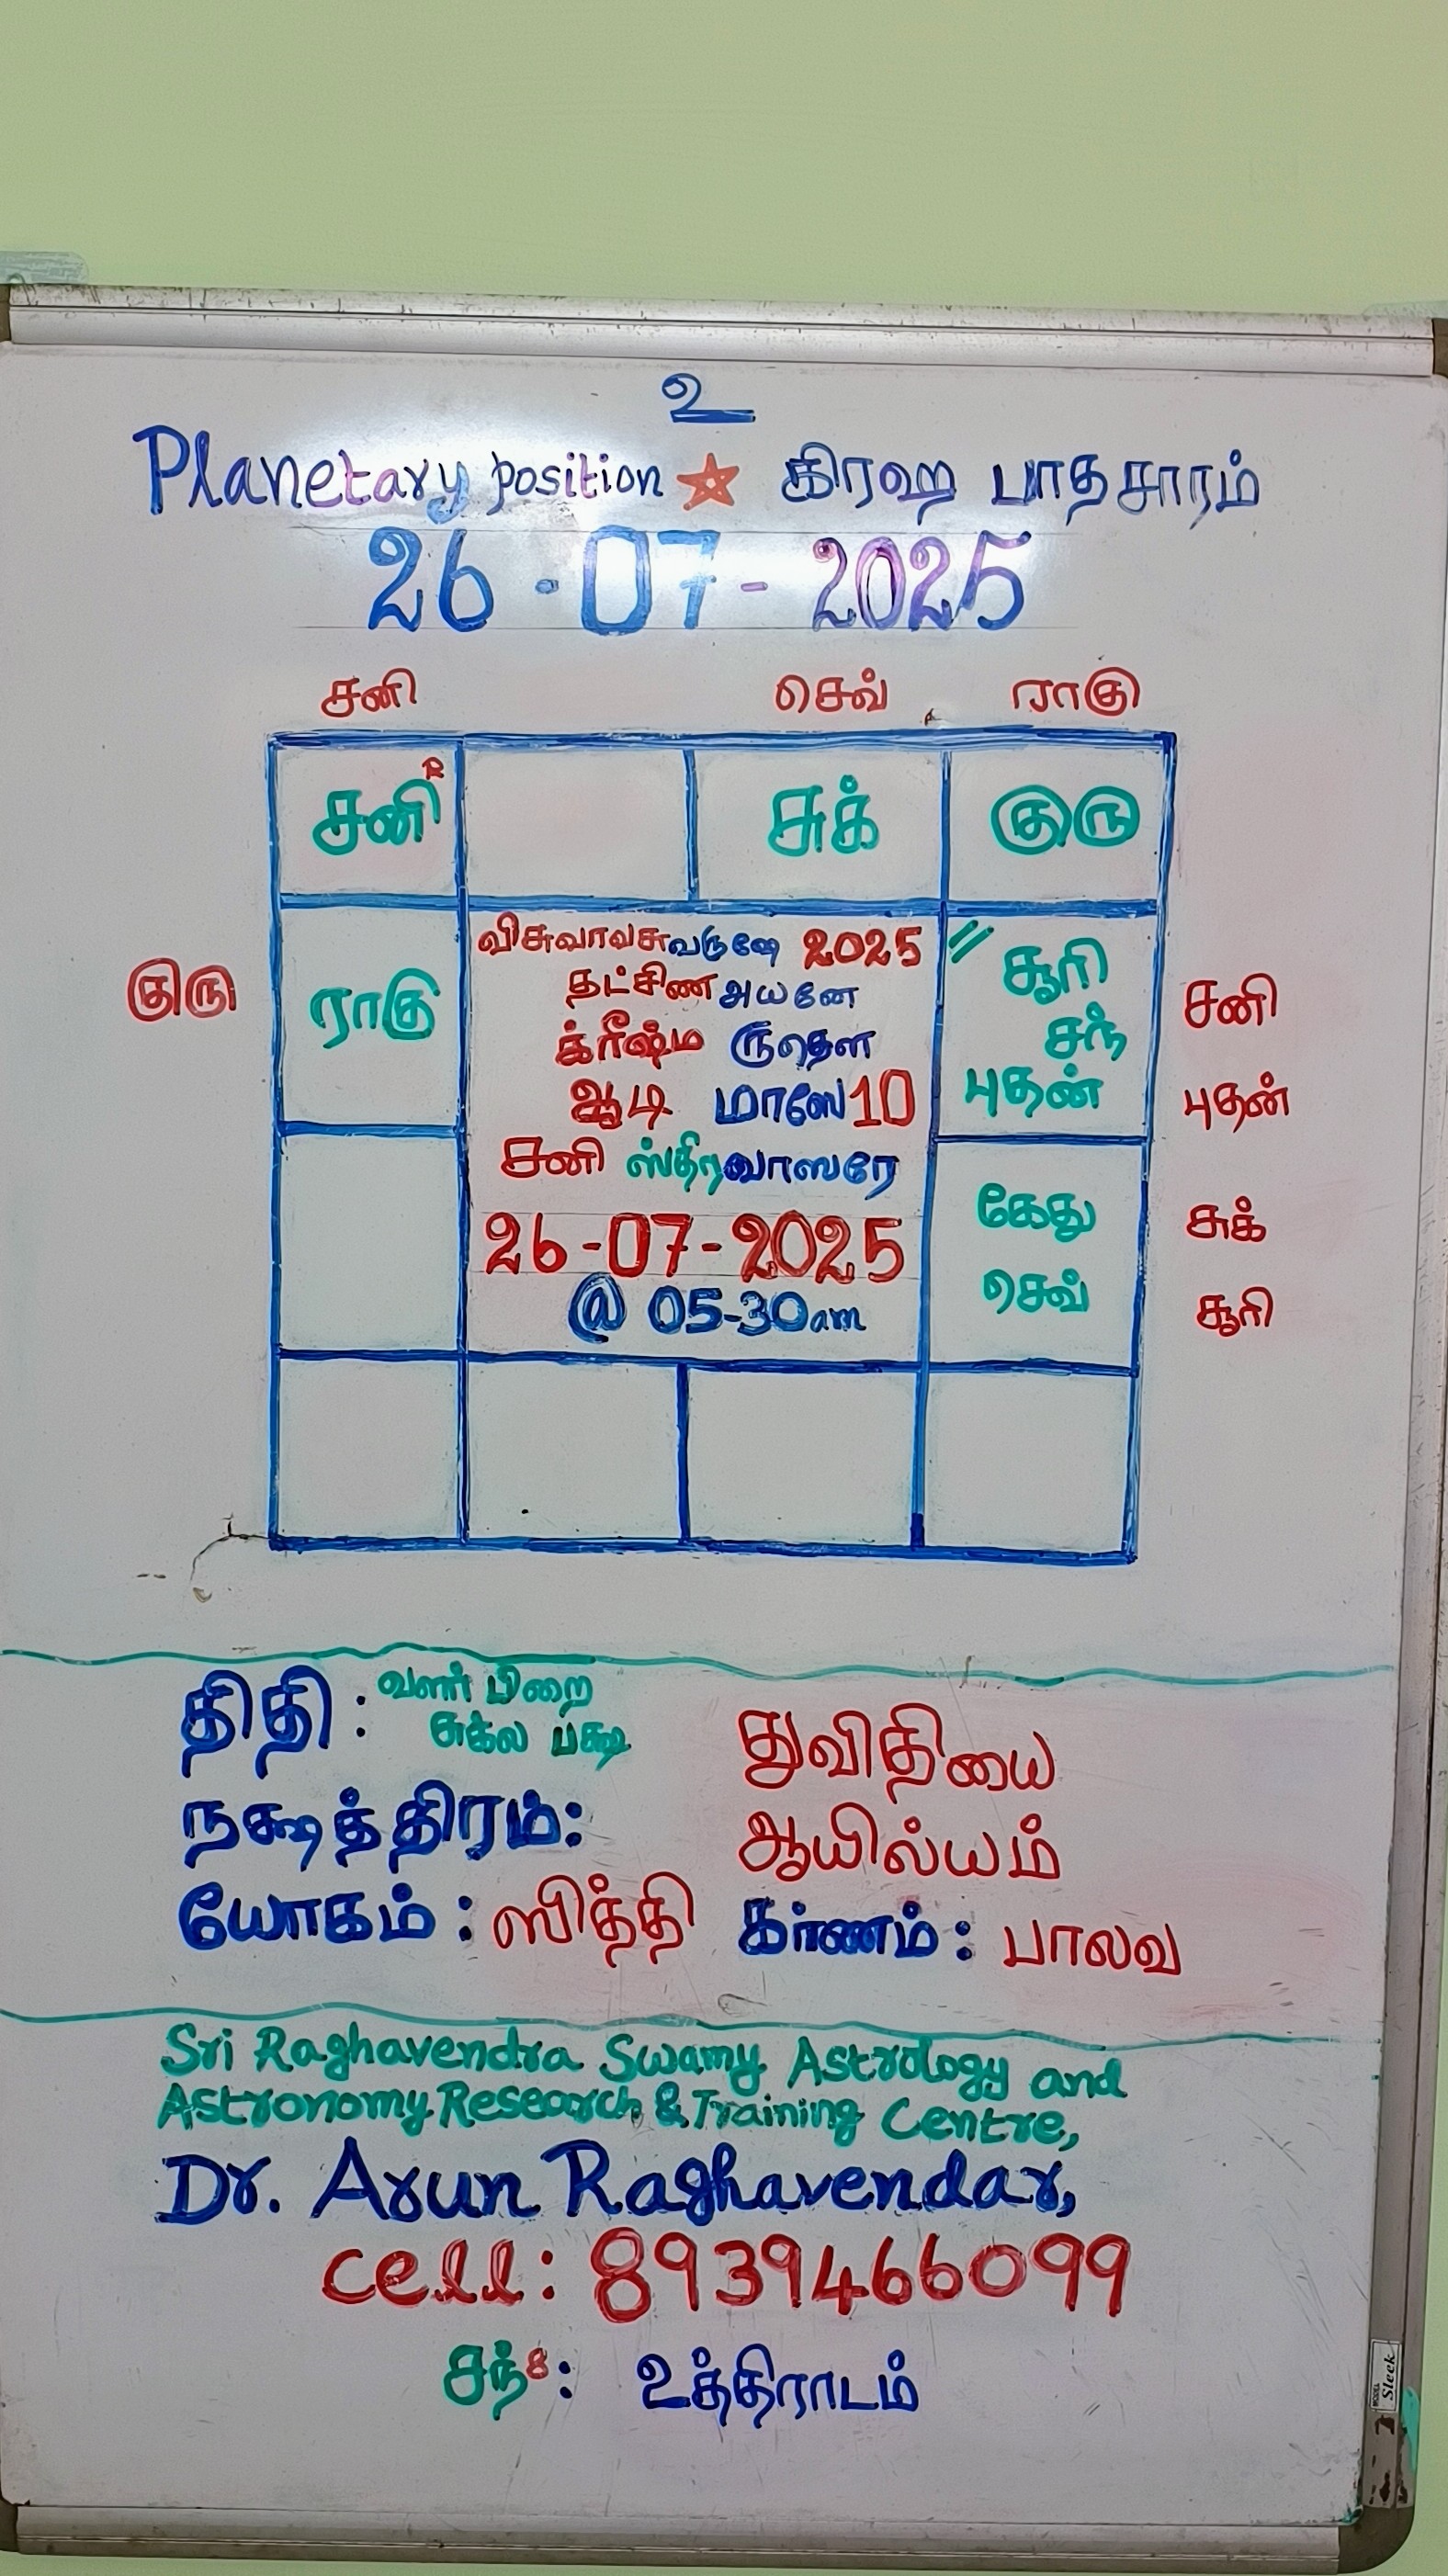 உ
Planetary position ★ கிரஹ பாதசாரம்
26-07-2025
சனி செவ் ராகு
சனி R சுக் குரு
குரு ராகு
விசுவாவசுவருஷே 2025
தட்சிண அயனே
க்ரீஷ்ம ருதௌ
ஆடி மாஸே 10
சனி ஸ்திரவாஸரே
26-07-2025
@ 05-30am
சூரி
சந்
புதன்
சனி
புதன்
கேது
செவ்
சுக்
சூரி
திதி : வளர் பிறை
சுக்ல பக்ஷ துவிதியை
நக்ஷத்திரம்: ஆயில்யம்
யோகம் : ஸித்தி கர்ணம் : பாலவ
Sri Raghavendra Swamy Astrology and
Astronomy Research & Training Centre,
Dr. Arun Raghavendar,
cell: 8939466099
சந்8: உத்திராடம்
MODEL
Sleek